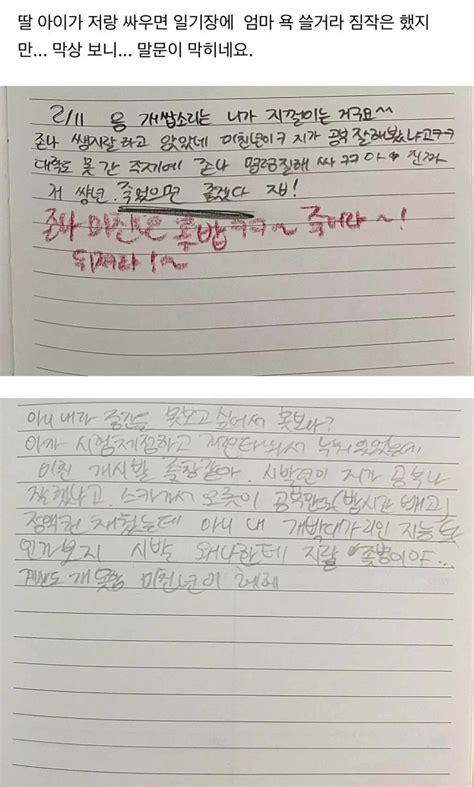 딸 아이가 저랑 싸우면 일기장에  엄마 욕 쓸거라 짐작은 했지
만... 막상 보니... 말문이 막히네요.
2/11 응 개쌉소리는 니가 지껄이는거구요~~
존나 쌩지랄하고 앉았네 미친년이ㅋ 지가 공부 잘해봤냐고ㅋㅋ
대학도 못 간 주제에 존나 멍멍질해 싸ㅋㅋ 아 진짜
거 썅년 죽었으면 좋겠다 지발!
존나 미친년 좆밥ㅋㅋ~ 죽어라~!
뒤져라!~
아니 내가 중간을 못보고 싶어서 못보나?
아까 시험채점하고 누워있었는데
미친 개시발 같아. 시박년이 지가 공부나
잘했냐고. 스카가서 오롯이 공부만으로 (밥시간 빼고)
채웠는데 아니 내 개빡대가리인 지능
인가보지 시발 왜 나한테 지랄 이야...
미친년이